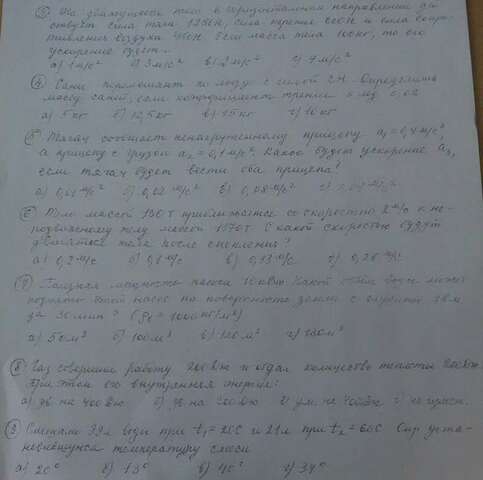 ③ На движущееся тело в горизонтальном направлении дей
ствует сила тяги 1250Н, сила трения 600Н и сила сопро
тивления воздуха 450Н. Если масса тела 100кг, то его
ускорение будет..
а) 1м/с² б) 3м/с² в) 2м/с² г) 7м/с²
④ Сани перемещают по льду с силой 2Н. Определить
массу саней, если коэффициент трения 0,02
а) 5кг б) 12,5кг в) 15кг г) 10кг
⑤ Тягач сообщает ненагруженному прицепу a₁=0,4м/с²,
а прицепу с грузом a₂=0,1м/с². Какое будет ускорение a₃,
если тягач будет вести оба прицепа?
а) 0,01 м/с² б) 0,02 м/с² в) 0,08м/с² г)
⑥ Тело массой 130т приближается со скоростью 2м/с к не-
подвижному телу массой 1170т С какой скоростью будут
двигаться тела после сцепления?
а) 0,2 м/с б) м/с в) 0,13 м/с г) 0,26 м/с
⑦ мощность насоса 10кВт. Какой объём воды может
поднять такой насос на поверхность земли с глубины 18м
за 30мин? (ρ = 1000кг/м³)
а) 50м³ б) 100м³ в) г)
⑧ Газ совершил работу 200Дж и отдал количество теплоты
При этом его внутренняя энергия:
а) ув на 400Дж б) ув на 200Дж в) ум. на 400Дж г)
⑨ Смешали 39л воды при t₁=20С и 21л при t₂=60С Опр уста-
новившуюся температуру смеси
а) 20° в) 40° г) 34°